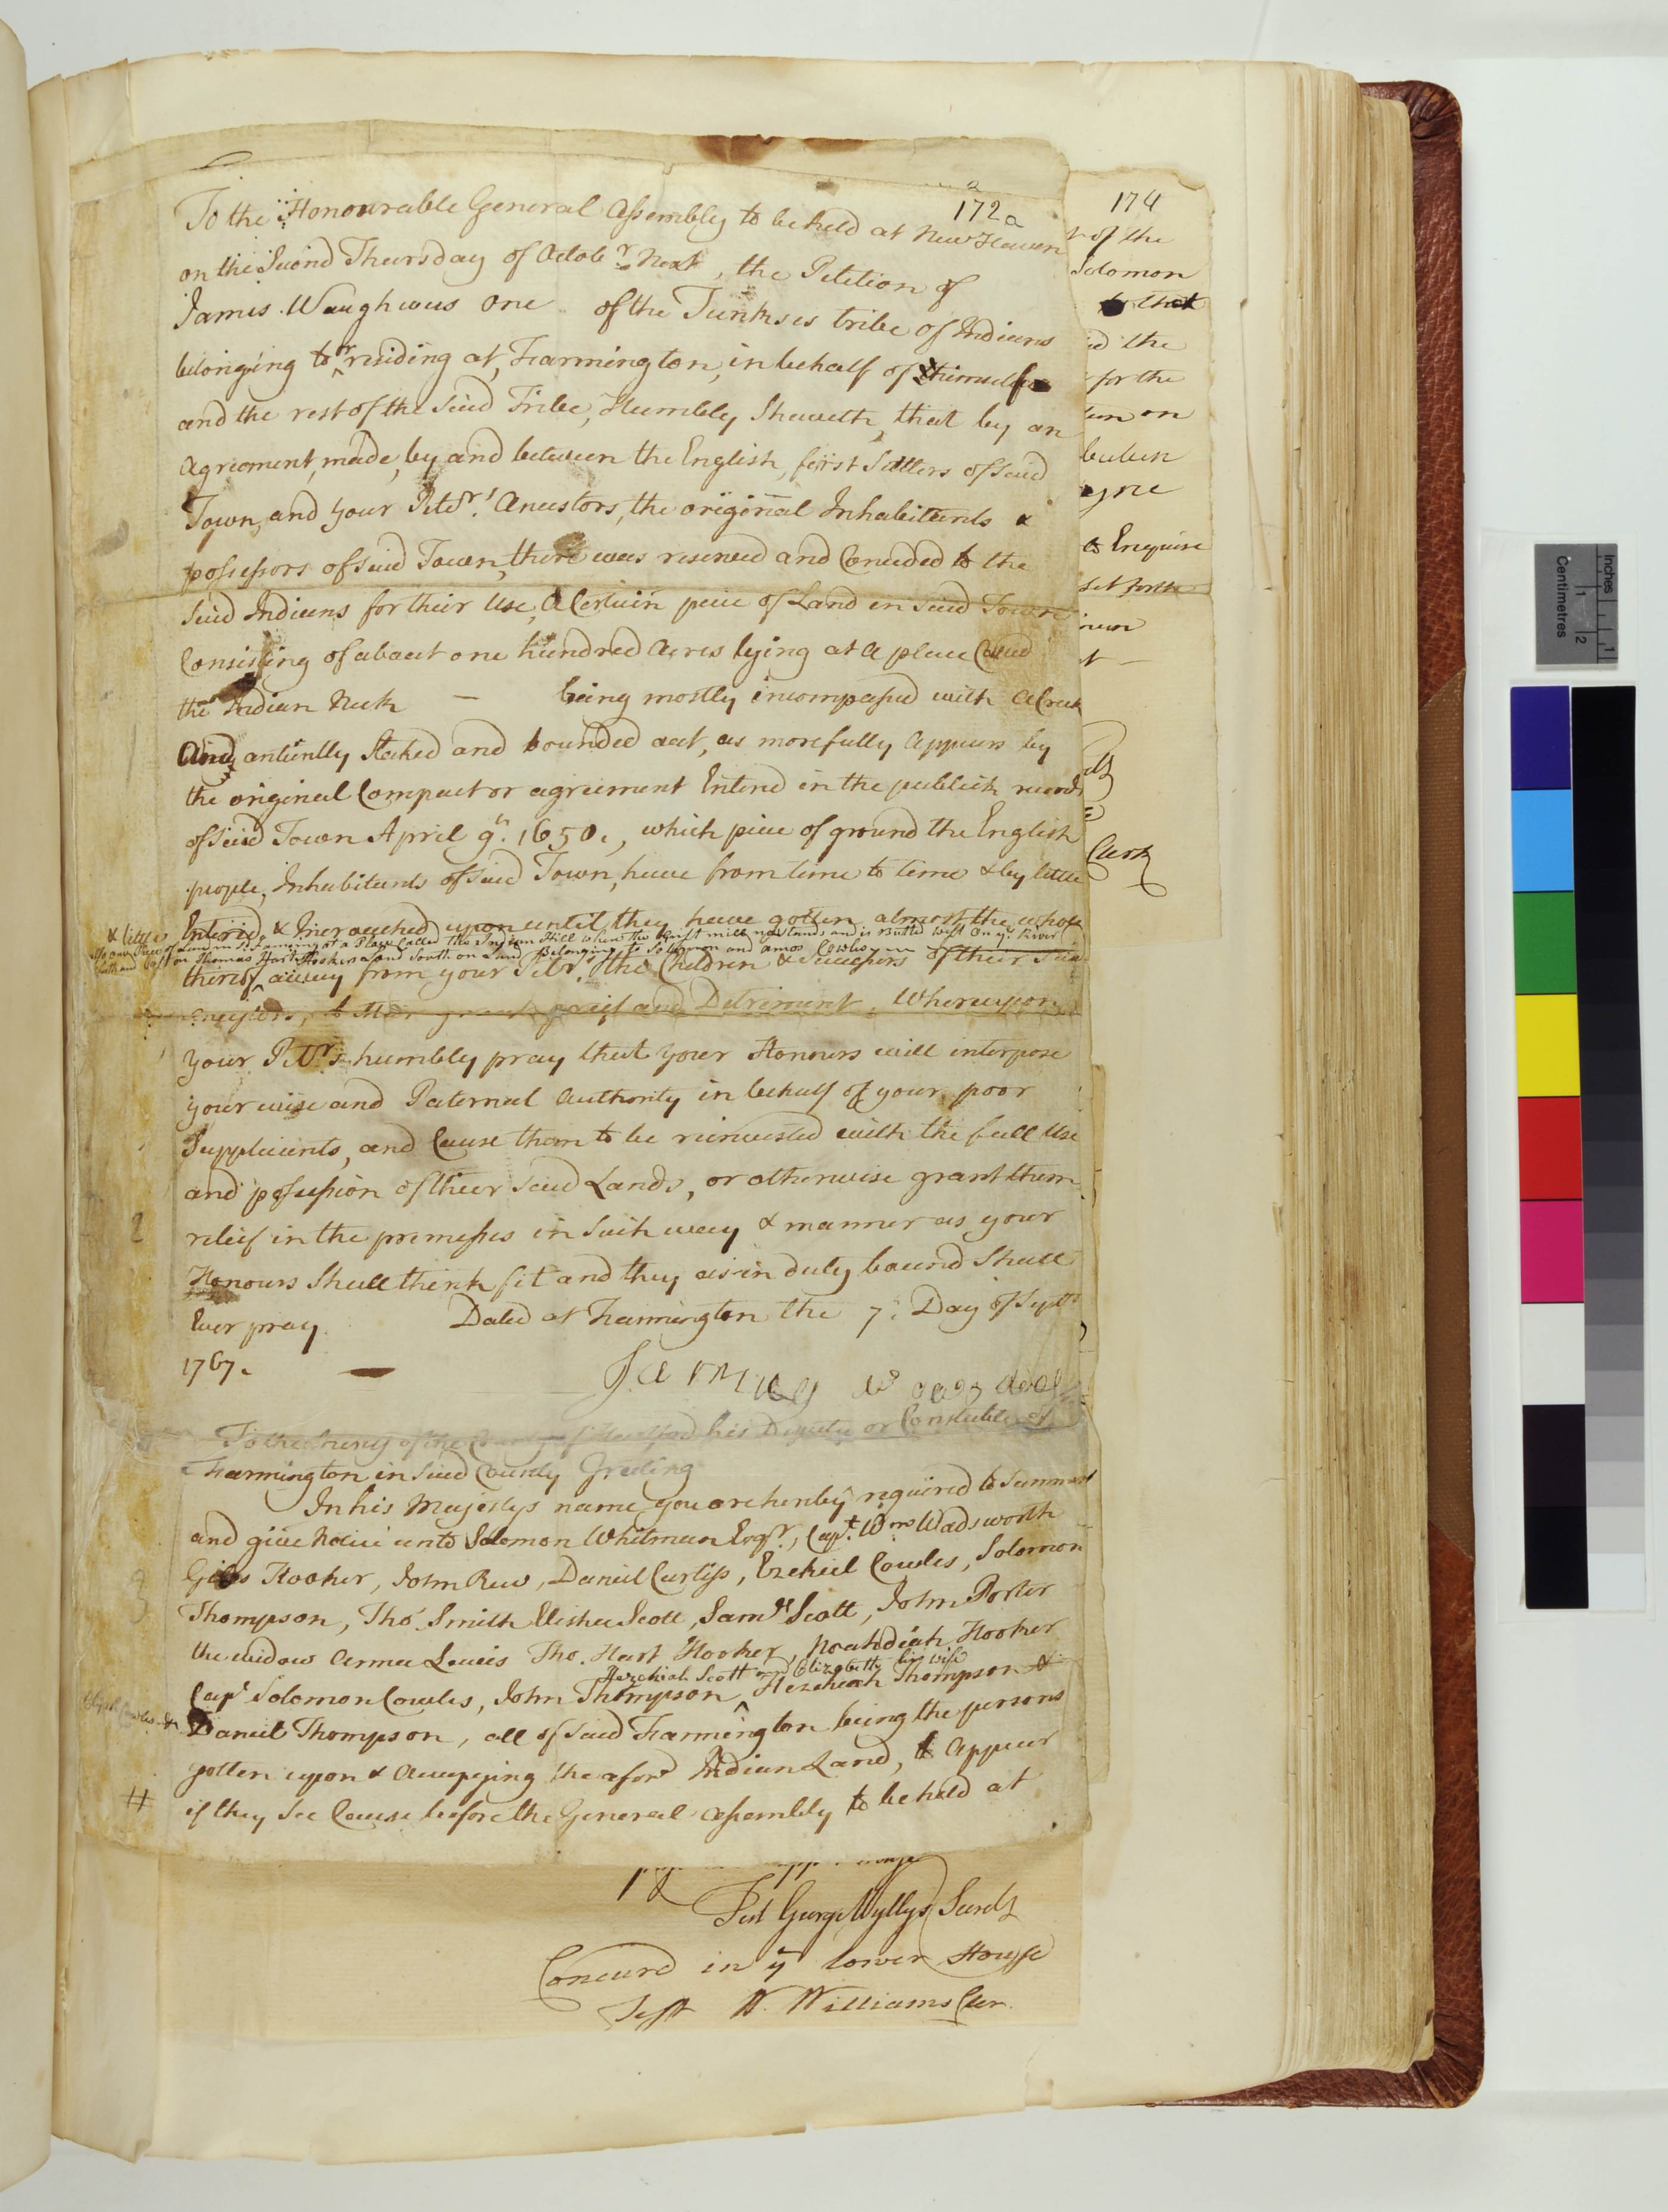 172a
To the Honourable General Assembly to be held at New Haven
on the Second Thursday of Octobr Next, the Petition of
James Waughwus One of the Tunkses tribe of Indians
belonging to & residing at, Farmington, in behalf of himself
and the rest of the Said Tribe, Humbly Sheweth, that by an
Agreement, made, by and between the English, first Settlers of Said
Town, and your Petrs. Ancestors, the original Inhabitants &
possessors of Said Town, there was reserved and Conceded to the
Said Indians for their Use, A Certain peice of Land in Said Town
Consisting of about one hundred Acres lying at a place Called
the Indian Neck — being mostly incompassed with a Creek
And antiently Staked and bounded out, as more fully Appears by
the original Compact or agreement Enterd in the publick records
of Said Town April 9th. 1650., which peice of ground the English
people, Inhabitants of Said Town, have from time to time & by little
& little Enterd, & Incroached upon until they have gotten almost the whole
Also one Piece of Land in Sd Farmington at a Place Called the Indian Hill where the Grist mill now stands and is Butted West on ye. River
South and East on Thomas Hart Hookers Land South on Land Belonging to Solomon and Amos Cowles
thereof away from your Petrs. the Children & Successors of their Said
Ancestors, to their great greif and Detriment, Whereupon
your Petrs humbly pray that your Honours will interpose
your wise and Paternal Authority in behalf of your poor
Supplicants, and Cause them to be reinvested with the full Use
and possession of their Said Lands, or otherwise grant them
releif in the premesses in Such way & manner as your
Honours Shall think fit and they as in duty bound Shall
Ever pray. Dated at Farmington the 7: Day of Septr
1767.
To the Sheriff of the County of Hartford his Deputy or Constable of
Farmington in Said County Greeting
In his Majestys name you are hereby required to Summon
and give Notice unto Solomon Whitman Esqr., Capt. Wm Wadsworth
Giles Hooker, John Rew, Daniel Curtiss, Ezekiel Cowles, Solomon
Thompson, Tho. Smith Elisha Scott, Samll Scott, John Porter
the widow Anna Lewis Tho. Hart Hooker, Noahdiah Hooker
Hezekiah Scott and Elizabeth his wife
Capt Solomon Cowles, John Thompson, Hezekiah Thompson &
Daniel Thompson, all of Said Farmington being the persons
gotten upon & Occupying the aford Indian Land, to Appear
if they See Cause before the General Assembly to be held at
Test George Wyllys Secrety
Concurd in ye lower House
Test W. Williams Cler.
174
of the
Solomon
that
the
for the
on
between
to Enquire
Set forth
Clerk